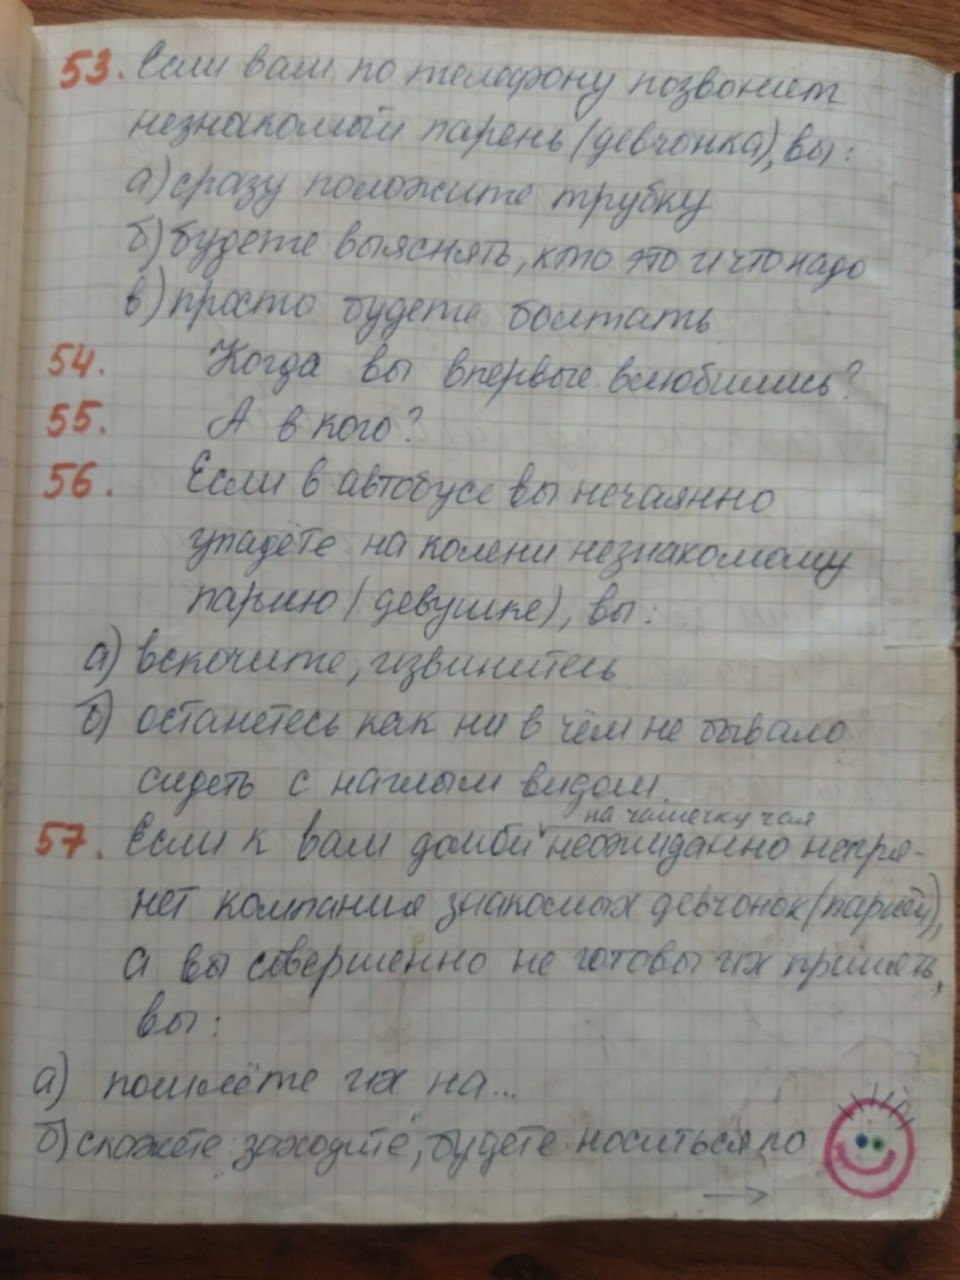 53. Если вам по телефону позвонит
незнакомый парень (девчонка), вы:
а) сразу положите трубку
б) будете выяснять, кто это и что надо
в) просто будете болтать
54. Когда вы впервые влюбились?
55. А в кого?
56. Если в автобусе вы нечаянно
упадёте на колени незнакомому
парню (девушке), вы:
а) вскочите, извинитесь
б) останетесь как ни в чём не бывало
сидеть с наглым видом.
на чашечку чая
57. Если к вам домой неожиданно нагря-
нет компания знакомых девчонок (парней),
а вы совершенно не готовы их принять,
вы:
а) пошлёте их на...
б) скажете заходите, будете носиться по